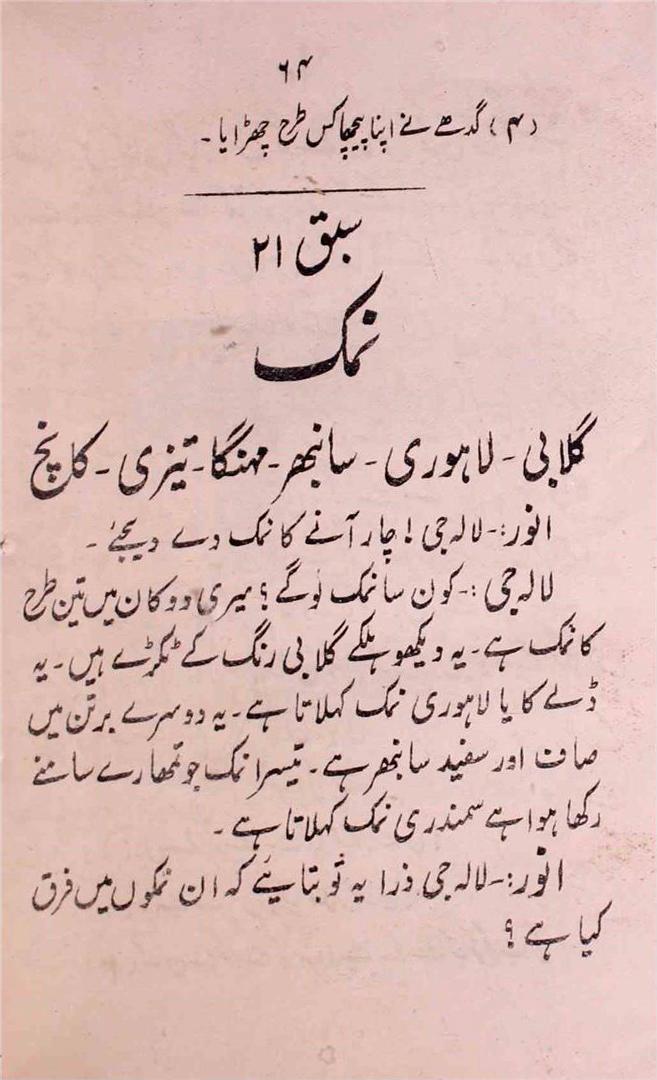 ۶۴
(۴) گدھے نے اپنا پیچھا کس طرح چھڑایا۔
سبق ۲۱
نمک
گلابی - لاہوری - سانبھر - مہنگا - تیزی - کانچ
انور:- لالہ جی! چار آنے کا نمک دے دیجئے۔
لالہ جی :- کون سا نمک لوگے؟ میری دوکان میں تین طرح
کا نمک ہے۔ یہ دیکھو ہلکے گلابی رنگ کے ٹکڑے ہیں۔ یہ
ڈلے کا یا لاہوری نمک کہلاتا ہے۔ یہ دوسرے برتن میں
صاف اور سفید سانبھر ہے۔ تیسرا نمک جو تمھارے سامنے
رکھا ہوا ہے سمندری نمک کہلاتا ہے۔
انور:- لالہ جی ذرا یہ تو بتایئے کہ ان نمکوں میں فرق
کیا ہے؟